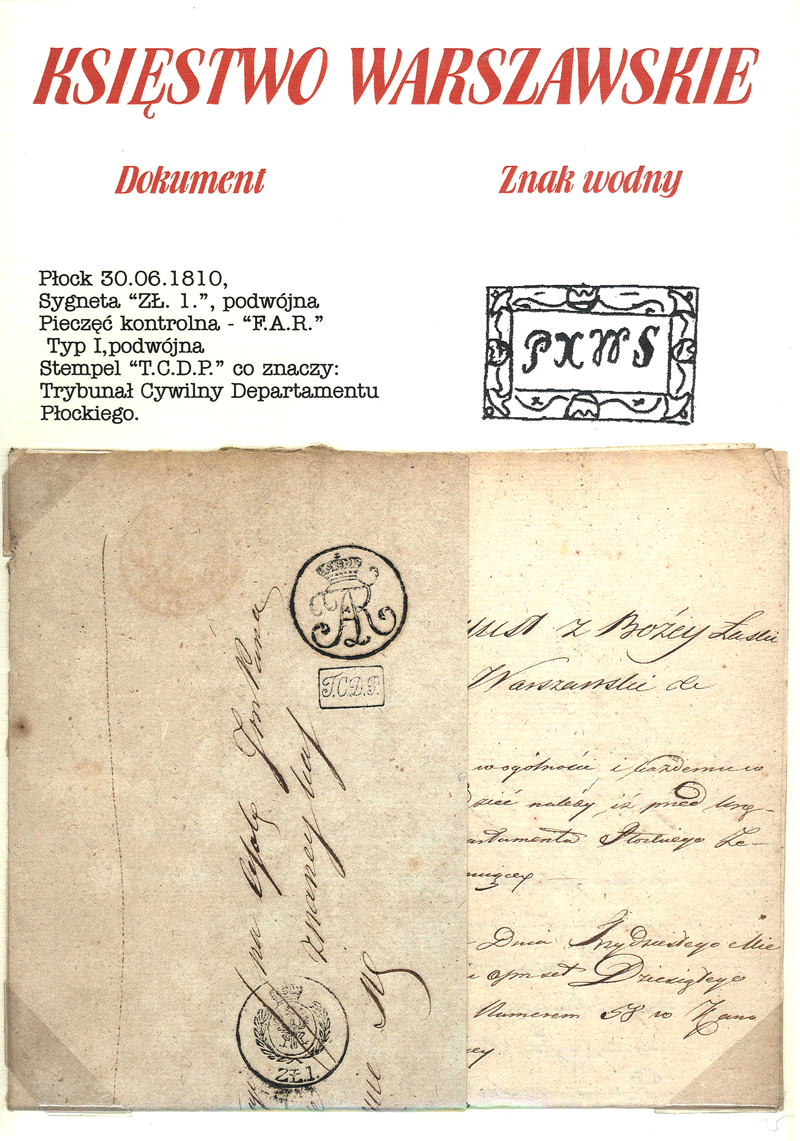 KSIĘSTWO WARSZAWSKIE
Dokument
Znak wodny
Płock 30.06.1810,
Sygneta “ZŁ. 1.”, podwójna
Pieczęć kontrolna - “F.A.R.”
Typ I,podwójna
Stempel “T.C.D.P.” co znaczy:
Trybunał Cywilny Departamentu
Płockiego.
PXWS
FAR
T.C.D.P.
ZŁ.1.
na
znaney
z Bożey Łaski
Warszawski &c
w ogólności i każdemu w
należy, iż przed
Płockiego
Dnia Trzydziestego Mie
Dziesiątego
Numerem 58 w